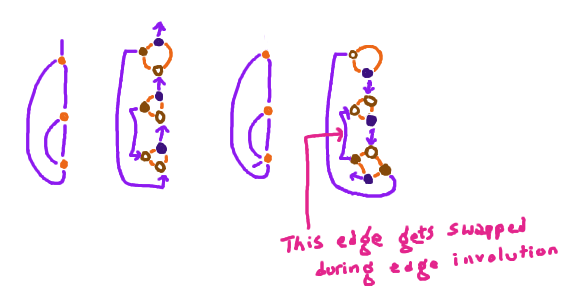 This edge gets swapped
during edge involution